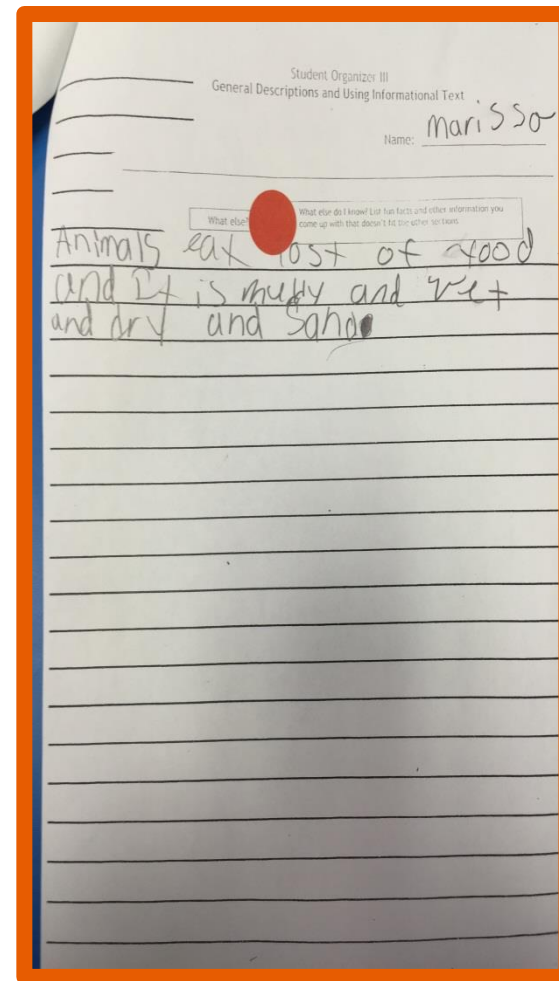 Student Organizer III
General Descriptions and Using Informational Text
Name: Marissa
What else?
What else do I know? List fun facts and other information you
come up with that doesn't fit the other sections.
Animals eat lost of food
and It is muddy and wet
and dry and Sand